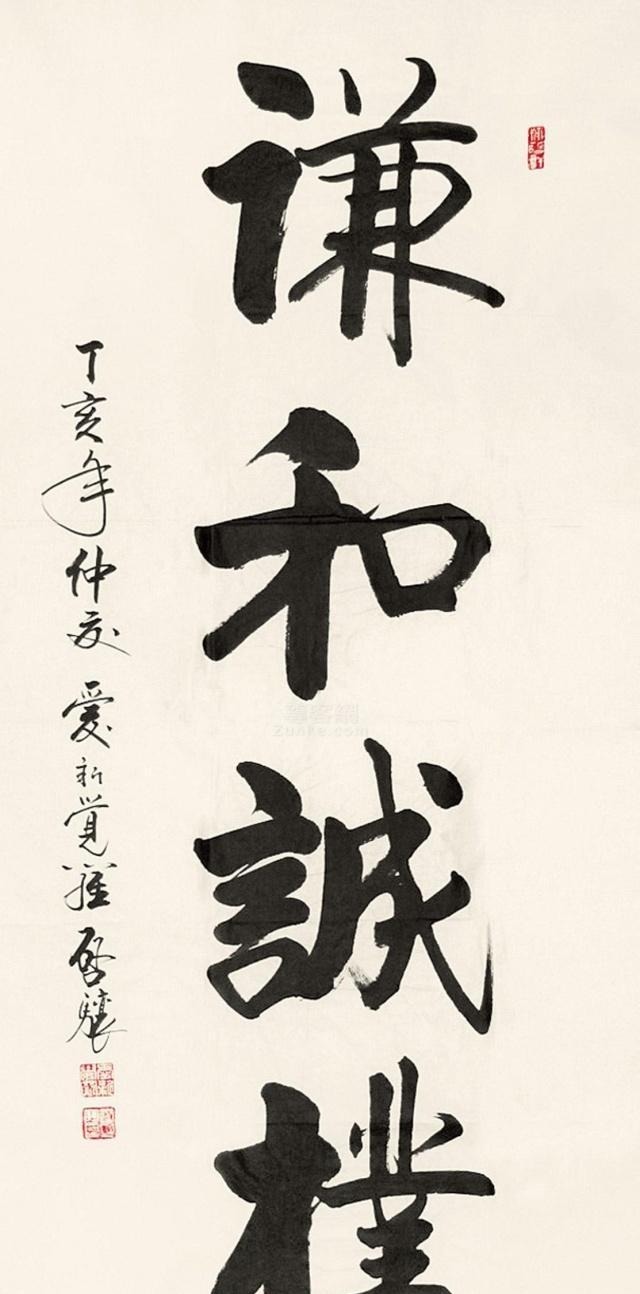 谦和誠樸
丁亥年仲夏 愛新覺羅 啓驤
尊客網
Zunke.com